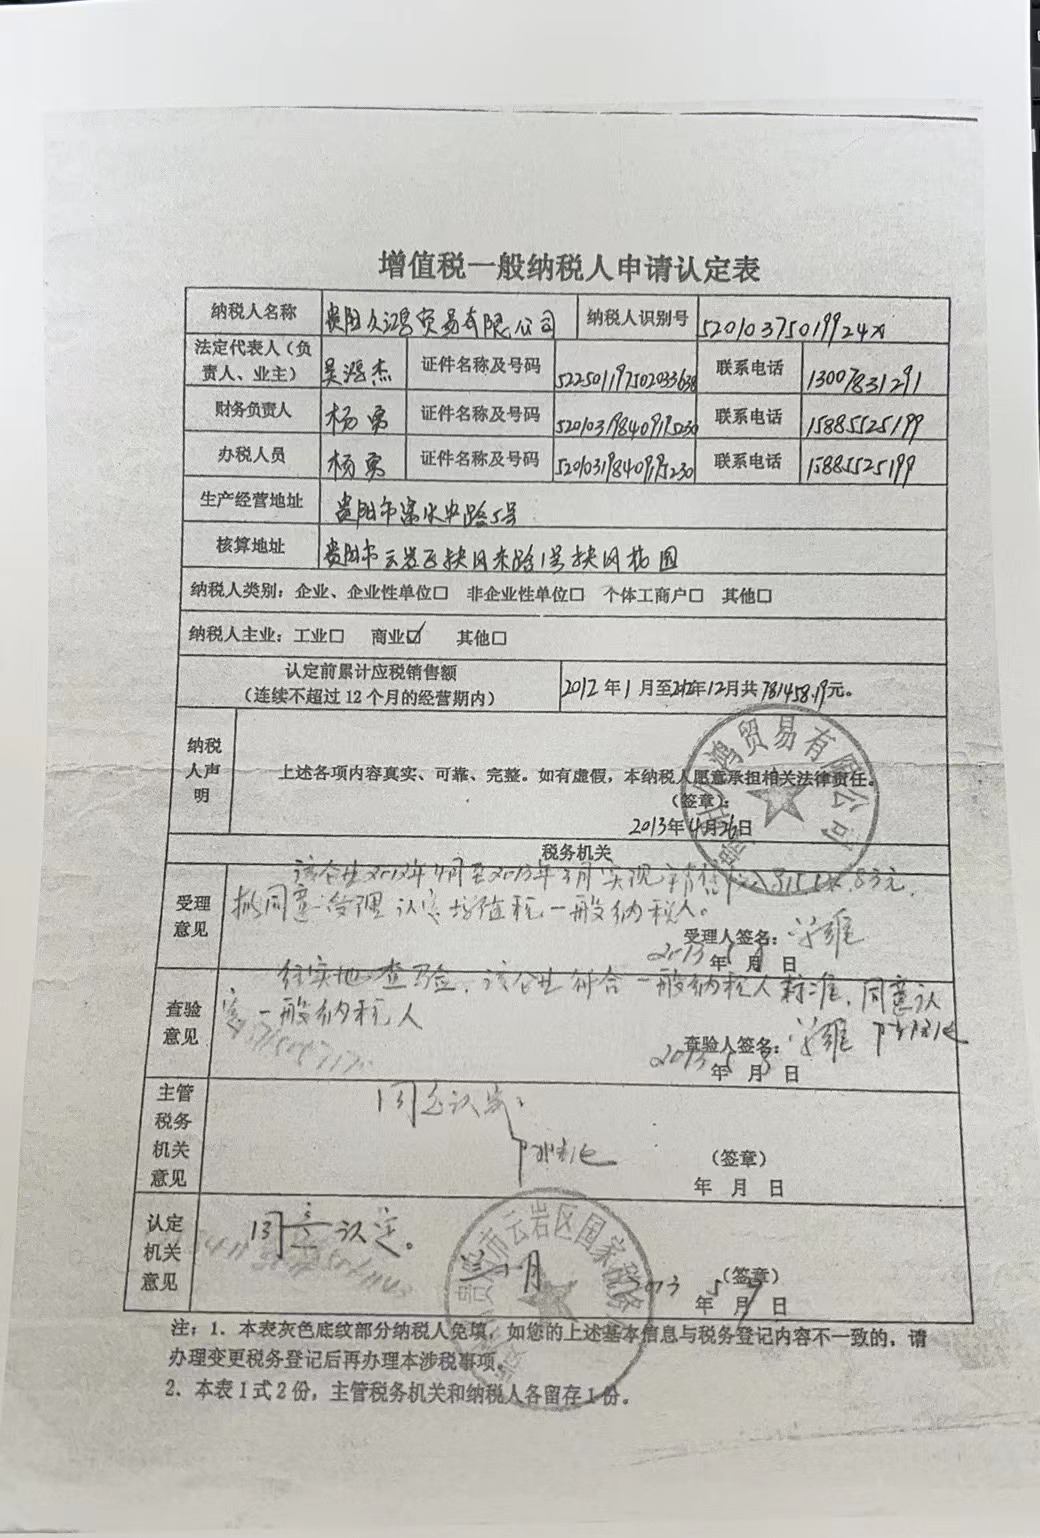 增值税一般纳税人申请认定表
纳税人名称 贵阳久鸿贸易有限公司 纳税人识别号 52010375019924X
法定代表人（负责人、业主） 吴鸿杰 证件名称及号码 联系电话 13007831291
财务负责人 杨勇 证件名称及号码 联系电话 15885525199
办税人员 杨勇 证件名称及号码 联系电话 15885525199
生产经营地址 贵阳市富水中路5号
核算地址 贵阳市云岩区扶风东路1号扶风花园
纳税人类别：企业、企业性单位□ 非企业性单位□ 个体工商户□ 其他□
纳税人主业：工业□ 商业☑ 其他□
认定前累计应税销售额
（连续不超过12个月的经营期内） 2012年1月至2012年12月共781458.19元。
纳税人声明
上述各项内容真实、可靠、完整。如有虚假，本纳税人愿意承担相关法律责任。
（签章）：
2013年4月26日
鸿贸易有限公司
税务机关
受理意见
该企业2012年 月至2013年3月实现销售收入 元，
拟同意受理认定增值税一般纳税人。
受理人签名：
2013年5月 日
查验意见
经实地查验，该企业符合一般纳税人标准，同意认
定一般纳税人
查验人签名：
2013年5月 日
主管税务机关意见
同意认定。
（签章）
年 月 日
认定机关意见
同意认定。
（签章）
2013年5月 日
市云岩区国家税务
注：1. 本表灰色底纹部分纳税人免填，如您的上述基本信息与税务登记内容不一致的，请
办理变更税务登记后再办理本涉税事项。
2. 本表1式2份，主管税务机关和纳税人各留存1份。